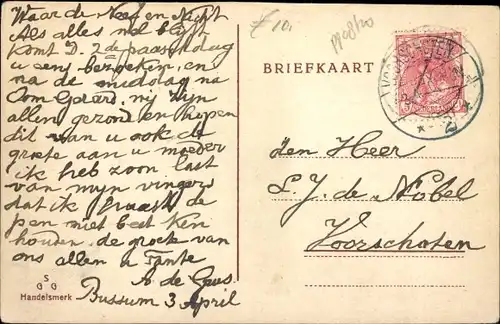 Waarde Neef en Nicht
Als alles wel blyft
komt D. 2de paaschdag
u eens bezoeken, en
na de middag na
Oom Gerard, wij zijn
allen gezond en hopen
dit van u ook de
groete aan u moeder
ik heb zoon last
van myn vingers
dat ik haast de
pen niet beet ken
houden, de groete van
ons allen u Tante
A de Gans.
Bussum 3 April
Handelsmerk
BRIEFKAART
VOORSCHOTEN
den Heer
S. J. de Nobel
Voorschoten